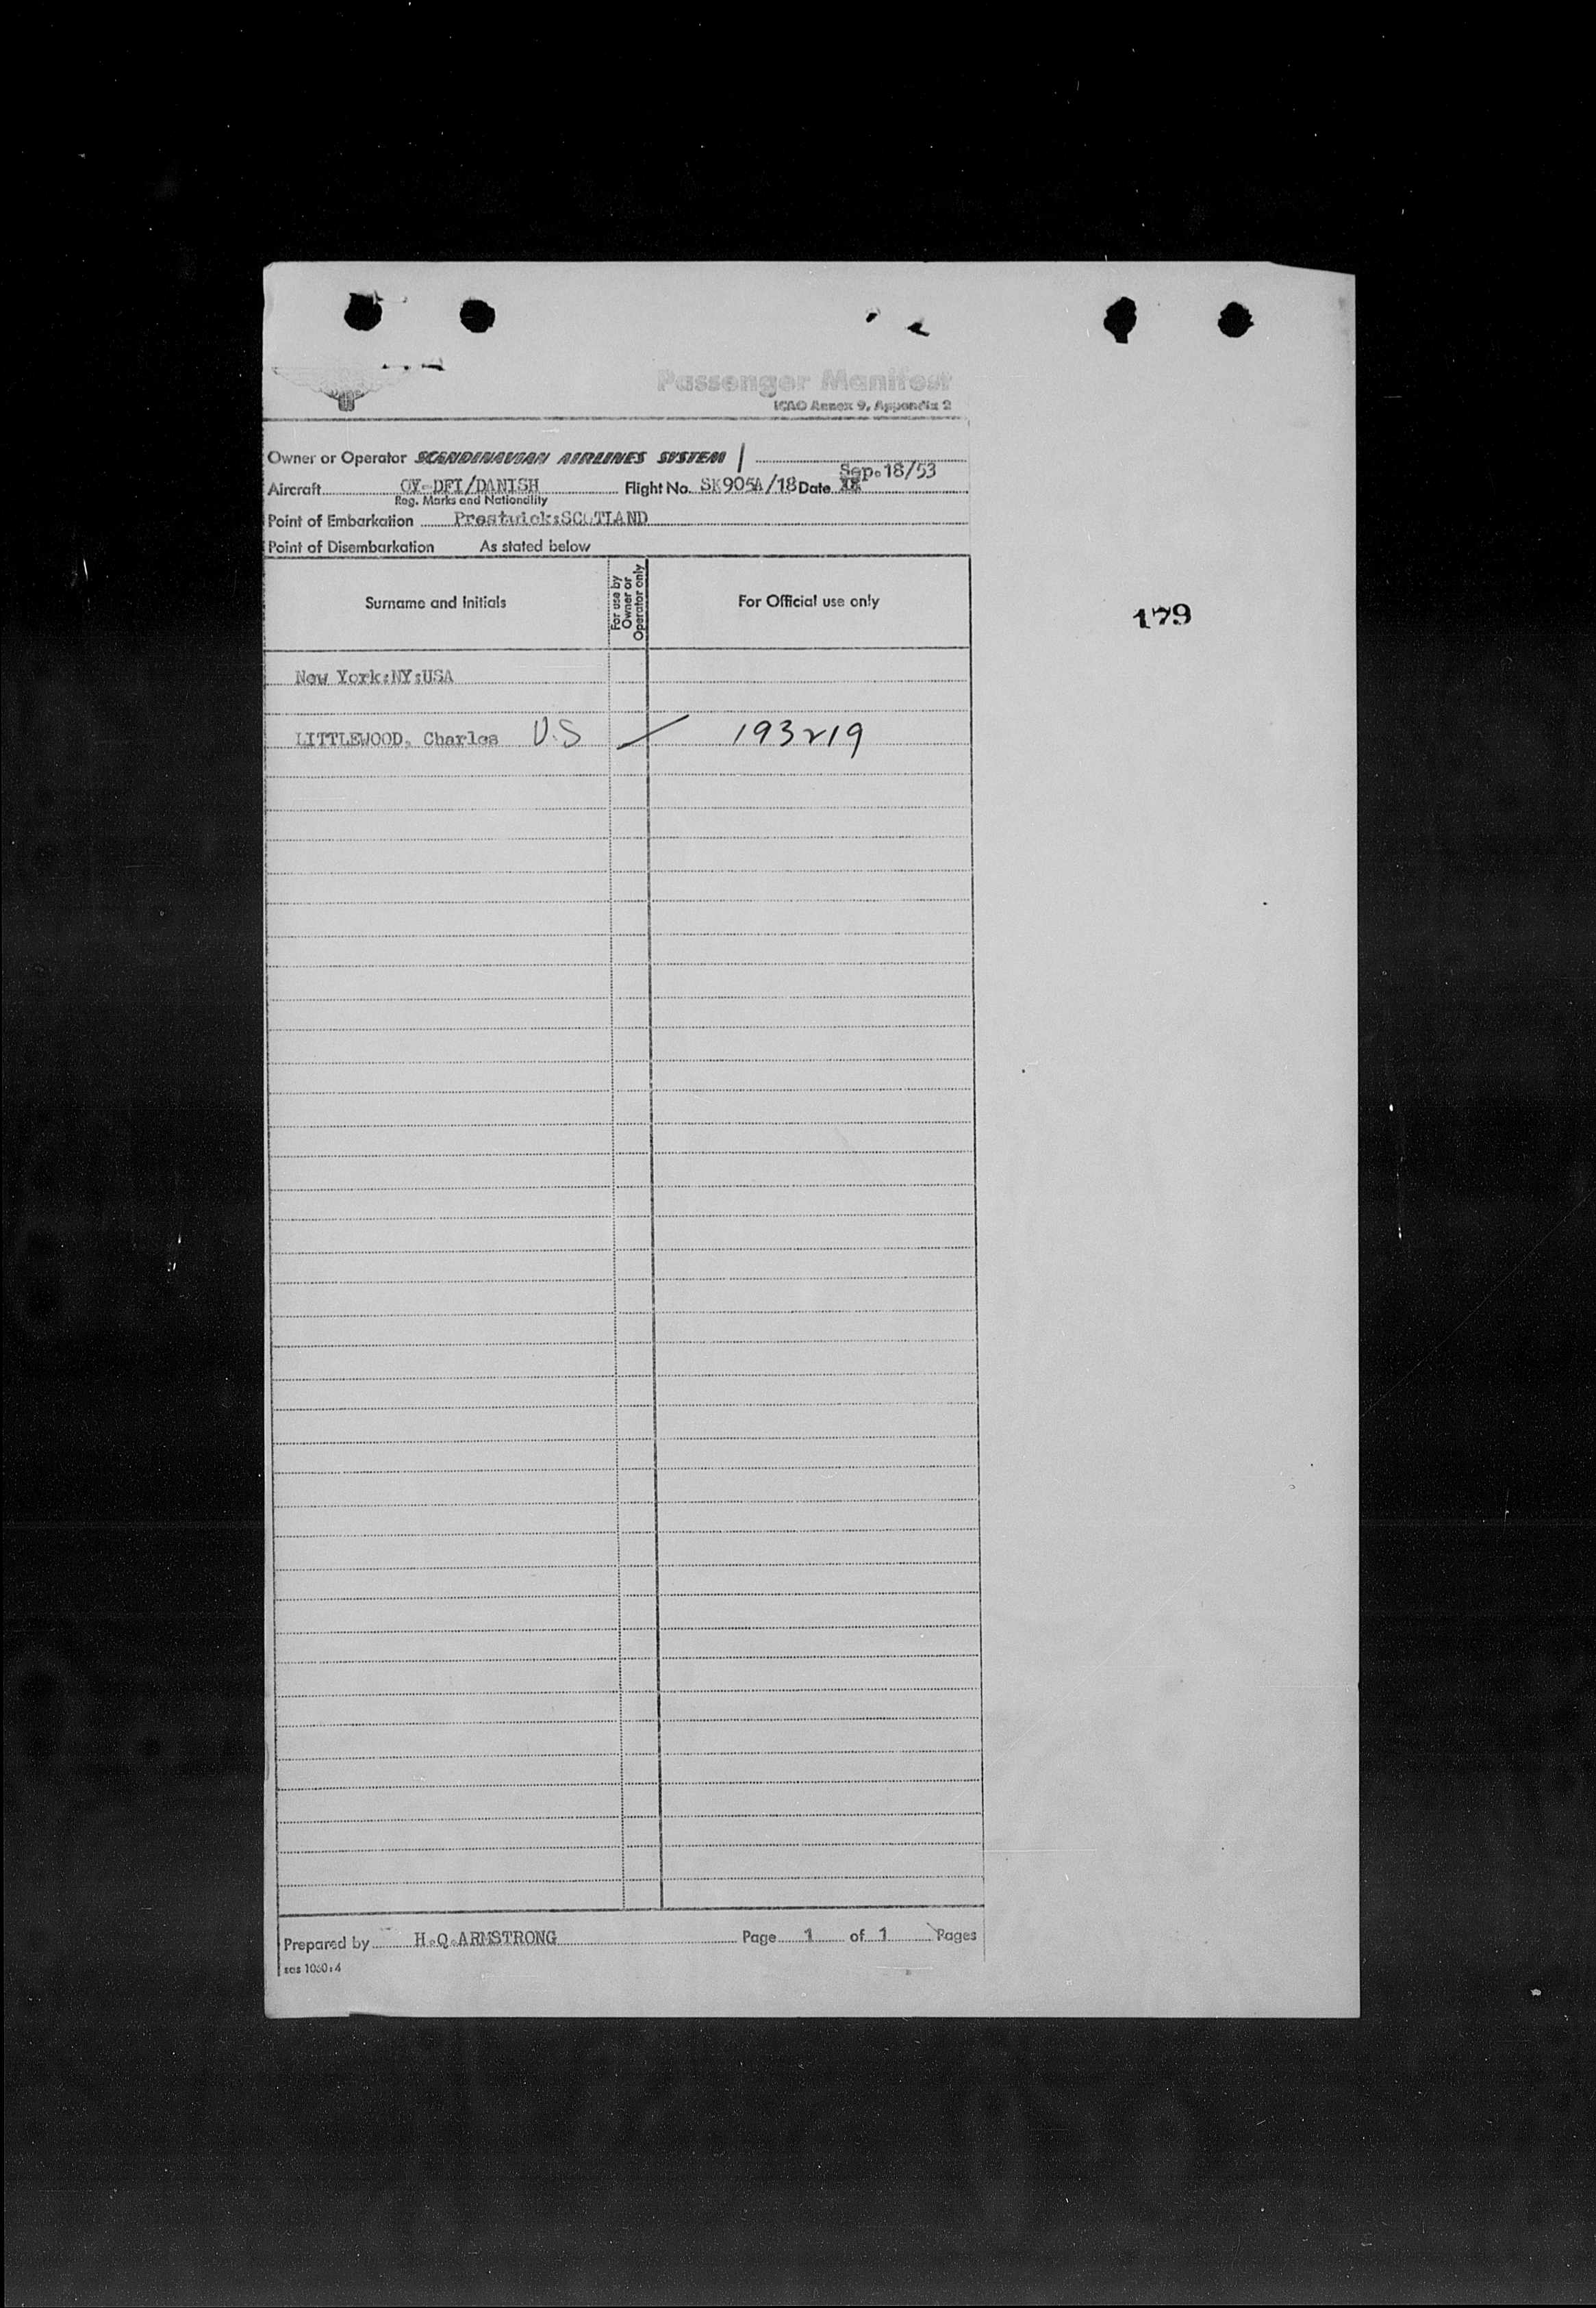 Passenger Manifest
ICAO Annex 9, Appendix 2
Owner or Operator SCANDINAVIAN AIRLINES SYSTEM
Sep.18/53
Aircraft OY-DFI/DANISH Flight No. SK905A/18 Date
Reg. Marks and Nationality
Point of Embarkation Prestwick:SCOTLAND
Point of Disembarkation As stated below
Surname and Initials
For use by
Owner or
Operator only
For Official use only
179
New York:NY:USA
LITTLEWOOD, Charles U.S 193219
Prepared by H.Q.ARMSTRONG Page 1 of 1 Pages
sas 1060:4